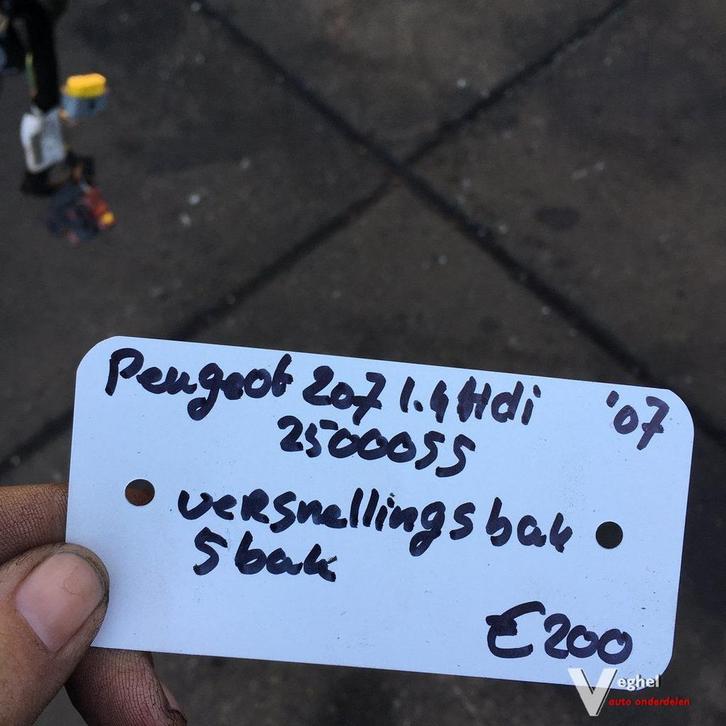 Peugeot 207 1.4 Hdi '07
2500055
versnellingsbak
5 bak
€200
Veghel
auto onderdelen